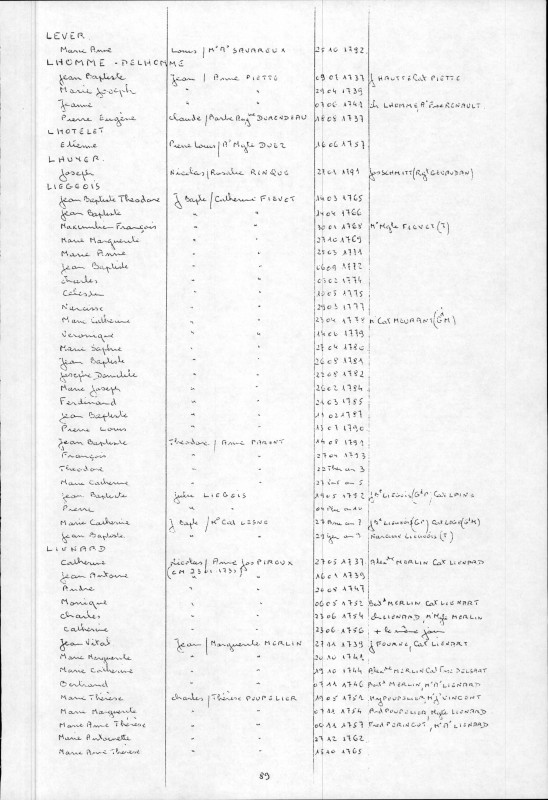 LEVER
Marie Anne Louis / Mie Ae SAVAREUX 25 10 1792
LHOMME - DELHOMME
Jean Baptiste Jean / Anne PIETTE 09 01 1737 J HAUTS Cat PIETTE
Marie Joseph " " 29 04 1739
Jeanne " " 07 06 1741 Ch LHOMME
Pierre Eugène Claude / Barbe DURENDEAU 18 08 1737
LHOTELET
Etienne Pierre Louis / Ae Mgte DUEZ 16 06 1757
LHUYER
Joseph Nicolas / Rosalie RINQUE 27 01 1791 Jos SCHMITT (Rgt GEVAUDAN)
LIEGEOIS
Jean Baptiste Theodore J Bapte / Catherine FIEVET 14 03 1765
Jean Baptiste " " 14 04 1766
Maximilien François " " 30 01 1768 Me Mgte FIEVET (T)
Marie Marguerite " " 27 10 1769
Marie Anne " " 28 03 1771
Jean Baptiste " " 06 09 1772
Charles " " 03 02 1774
Célestin " " 10 05 1775
Narcisse " " 29 03 1777
Marie Catherine " " 23 04 1778 M Cat MEURANT (GM)
Veronique " " 14 06 1779
Marie Sophie " " 27 04 1780
Jean Baptiste " " 26 08 1781
Josèphe Domitile " " 22 08 1782
Marie Joseph " " 26 02 1784
Ferdinand " " 21 03 1785
Jean Baptiste " " 11 02 1787
Pierre Louis " " 15 01 1790
Jean Baptiste Theodore / Anne PARENT 14 08 1791
François " " 27 04 1793
Theodore " " 22 Ther an 3
Marie Catherine " " 21 an 5
Jean Baptiste Julie LIEGEIS 19 05 1792 J Bte LIEGEOIS (GP) Cat
Pierre " an 10
Marie Catherine J Bapte / Me Cat LESNE 27 an 7 J Bte LIEGEOIS (GP) (GM)
Jean Baptiste " " 29 an 9 Narcisse LIEGEOIS
LIENARD
Catherine Nicolas / Anne Jos PIROUX 27 05 1737 Alexdre MERLIN Cat LIENARD
Jean Antoine (CM 23 01 1731) " 16 01 1739
André " " 20 08 1747
Monique " " 06 05 1752 MERLIN Cat LIENART
Charles " " 23 06 1754 Ch LIENARD, Me Mgte MERLIN
Catherine " " 23 06 1756 + le même jour
Jean Vital Jean / Marguerite MERLIN 27 11 1739 J FOURNE, Cat LIENART
Marie Marguerite " " 20 10 1741
Marie Catherine " " 19 10 1744 Alexdre MERLIN Cat Fse DELSART
Bertrand " " 07 11 1746 MERLIN, Me Ae LIENARD
Marie Thérèse Charles / Thérèse POUPELIER 19 05 1751 POUPELIER, VINCENT
Marie Marguerite " " 07 11 1754 POUPELIER, Mgte LIENARD
Marie Anne Thérèse " " 06 11 1757 Me Ae LIENARD
Marie Antoinette " " 27 12 1762
Marie Anne Thérèse " " 15 10 1765
89